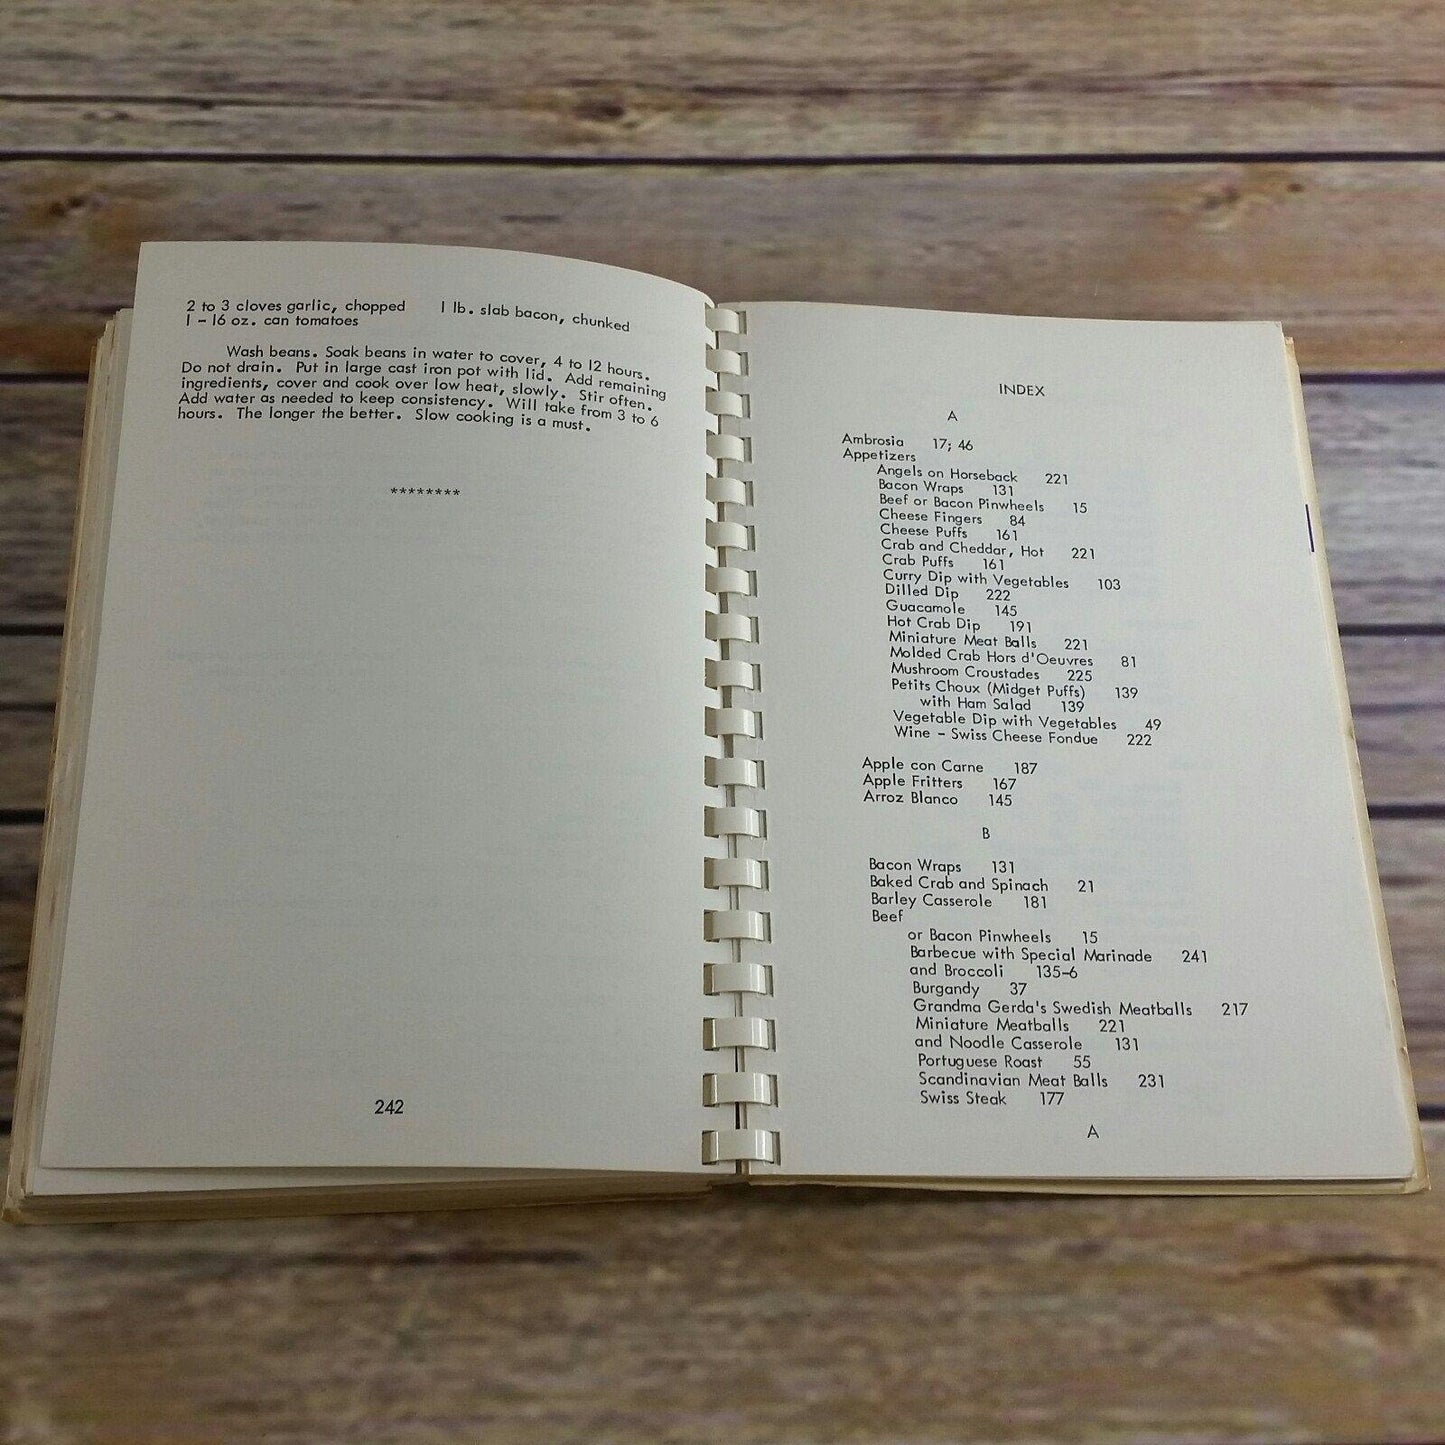 2 to 3 cloves garlic, chopped 1 lb. slab bacon, chunked
1 - 16 oz. can tomatoes
Wash beans. Soak beans in water to cover, 4 to 12 hours.
Do not drain. Put in large cast iron pot with lid. Add remaining
ingredients, cover and cook over low heat, slowly. Stir often.
Add water as needed to keep consistency. Will take from 3 to 6
hours. The longer the better. Slow cooking is a must.
********
242
INDEX
A
Ambrosia 17; 46
Appetizers
Angels on Horseback 221
Bacon Wraps 131
Beef or Bacon Pinwheels 15
Cheese Fingers 84
Cheese Puffs 161
Crab and Cheddar, Hot 221
Crab Puffs 161
Curry Dip with Vegetables 103
Dilled Dip 222
Guacamole 145
Hot Crab Dip 191
Miniature Meat Balls 221
Molded Crab Hors d'Oeuvres 81
Mushroom Croustades 225
Petits Choux (Midget Puffs) 139
with Ham Salad 139
Vegetable Dip with Vegetables 49
Wine - Swiss Cheese Fondue 222
Apple con Carne 187
Apple Fritters 167
Arroz Blanco 145
B
Bacon Wraps 131
Baked Crab and Spinach 21
Barley Casserole 181
Beef
or Bacon Pinwheels 15
Barbecue with Special Marinade 241
and Broccoli 135-6
Burgandy 37
Grandma Gerda's Swedish Meatballs 217
Miniature Meatballs 221
and Noodle Casserole 131
Portuguese Roast 55
Scandinavian Meat Balls 231
Swiss Steak 177
A